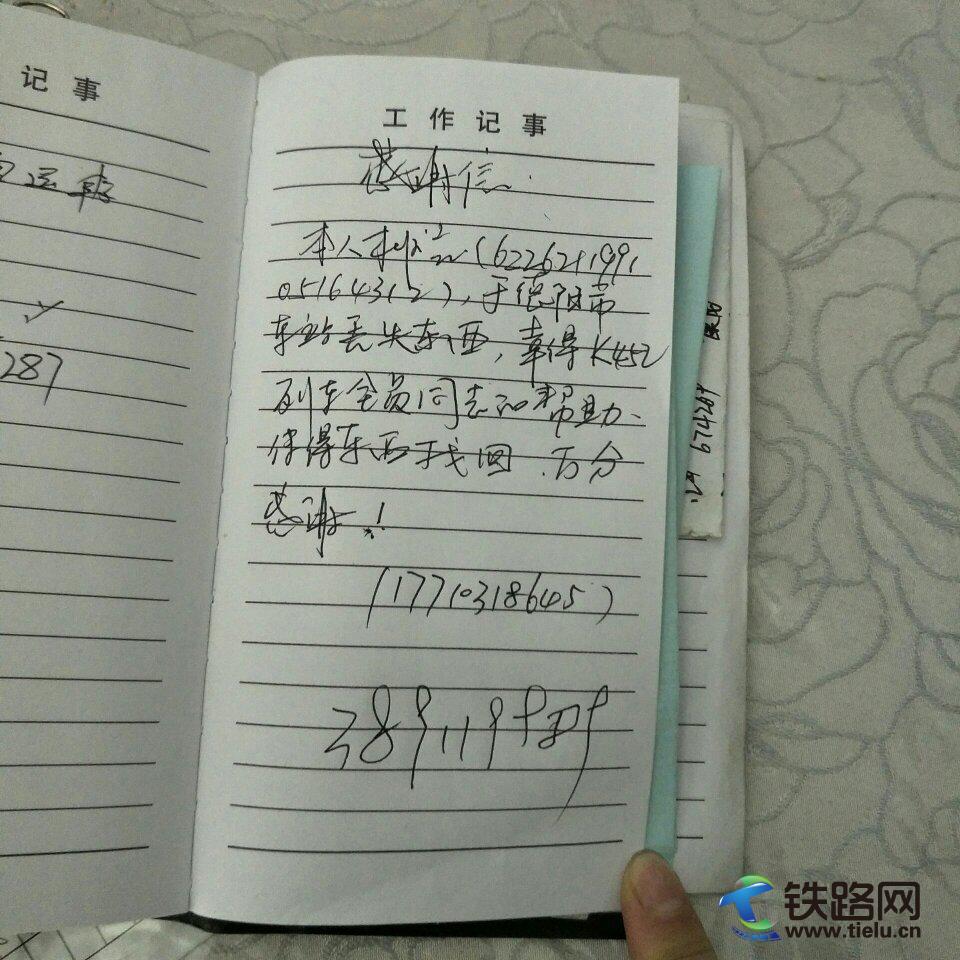 记事
287
工作记事
感谢信
本人(6226211991
05164312),于德阳市
车站丢失东西,幸得K452
列车全员同志和帮助、
使得东西找回、万分
感谢!
(17710318645)
674284
铁路网
www.tielu.cn